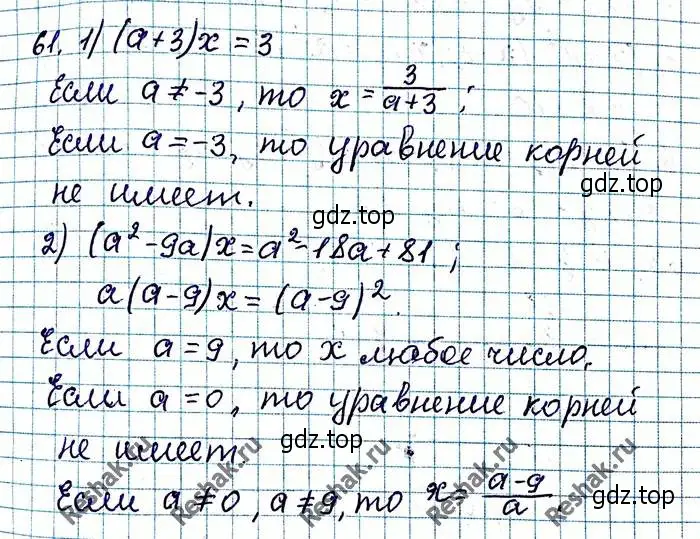 61. 1) (a+3)x = 3
Если a ≠ -3, то x = 3/(a+3) ;
Если a = -3, то уравнение корней
gdz.top
не имеет.
gdz.top
2) (a² - 9a)x = a² - 18a + 81 ;
a(a-9)x = (a-9)².
Если a = 9, то x любое число.
Если a = 0, то уравнение корней
не имеет
gdz.top
Reshak.ru
Reshak.ru
Reshak.ru
Reshak.ru
Если a ≠ 0, a ≠ 9, то x = (a-9)/a
gdz.top